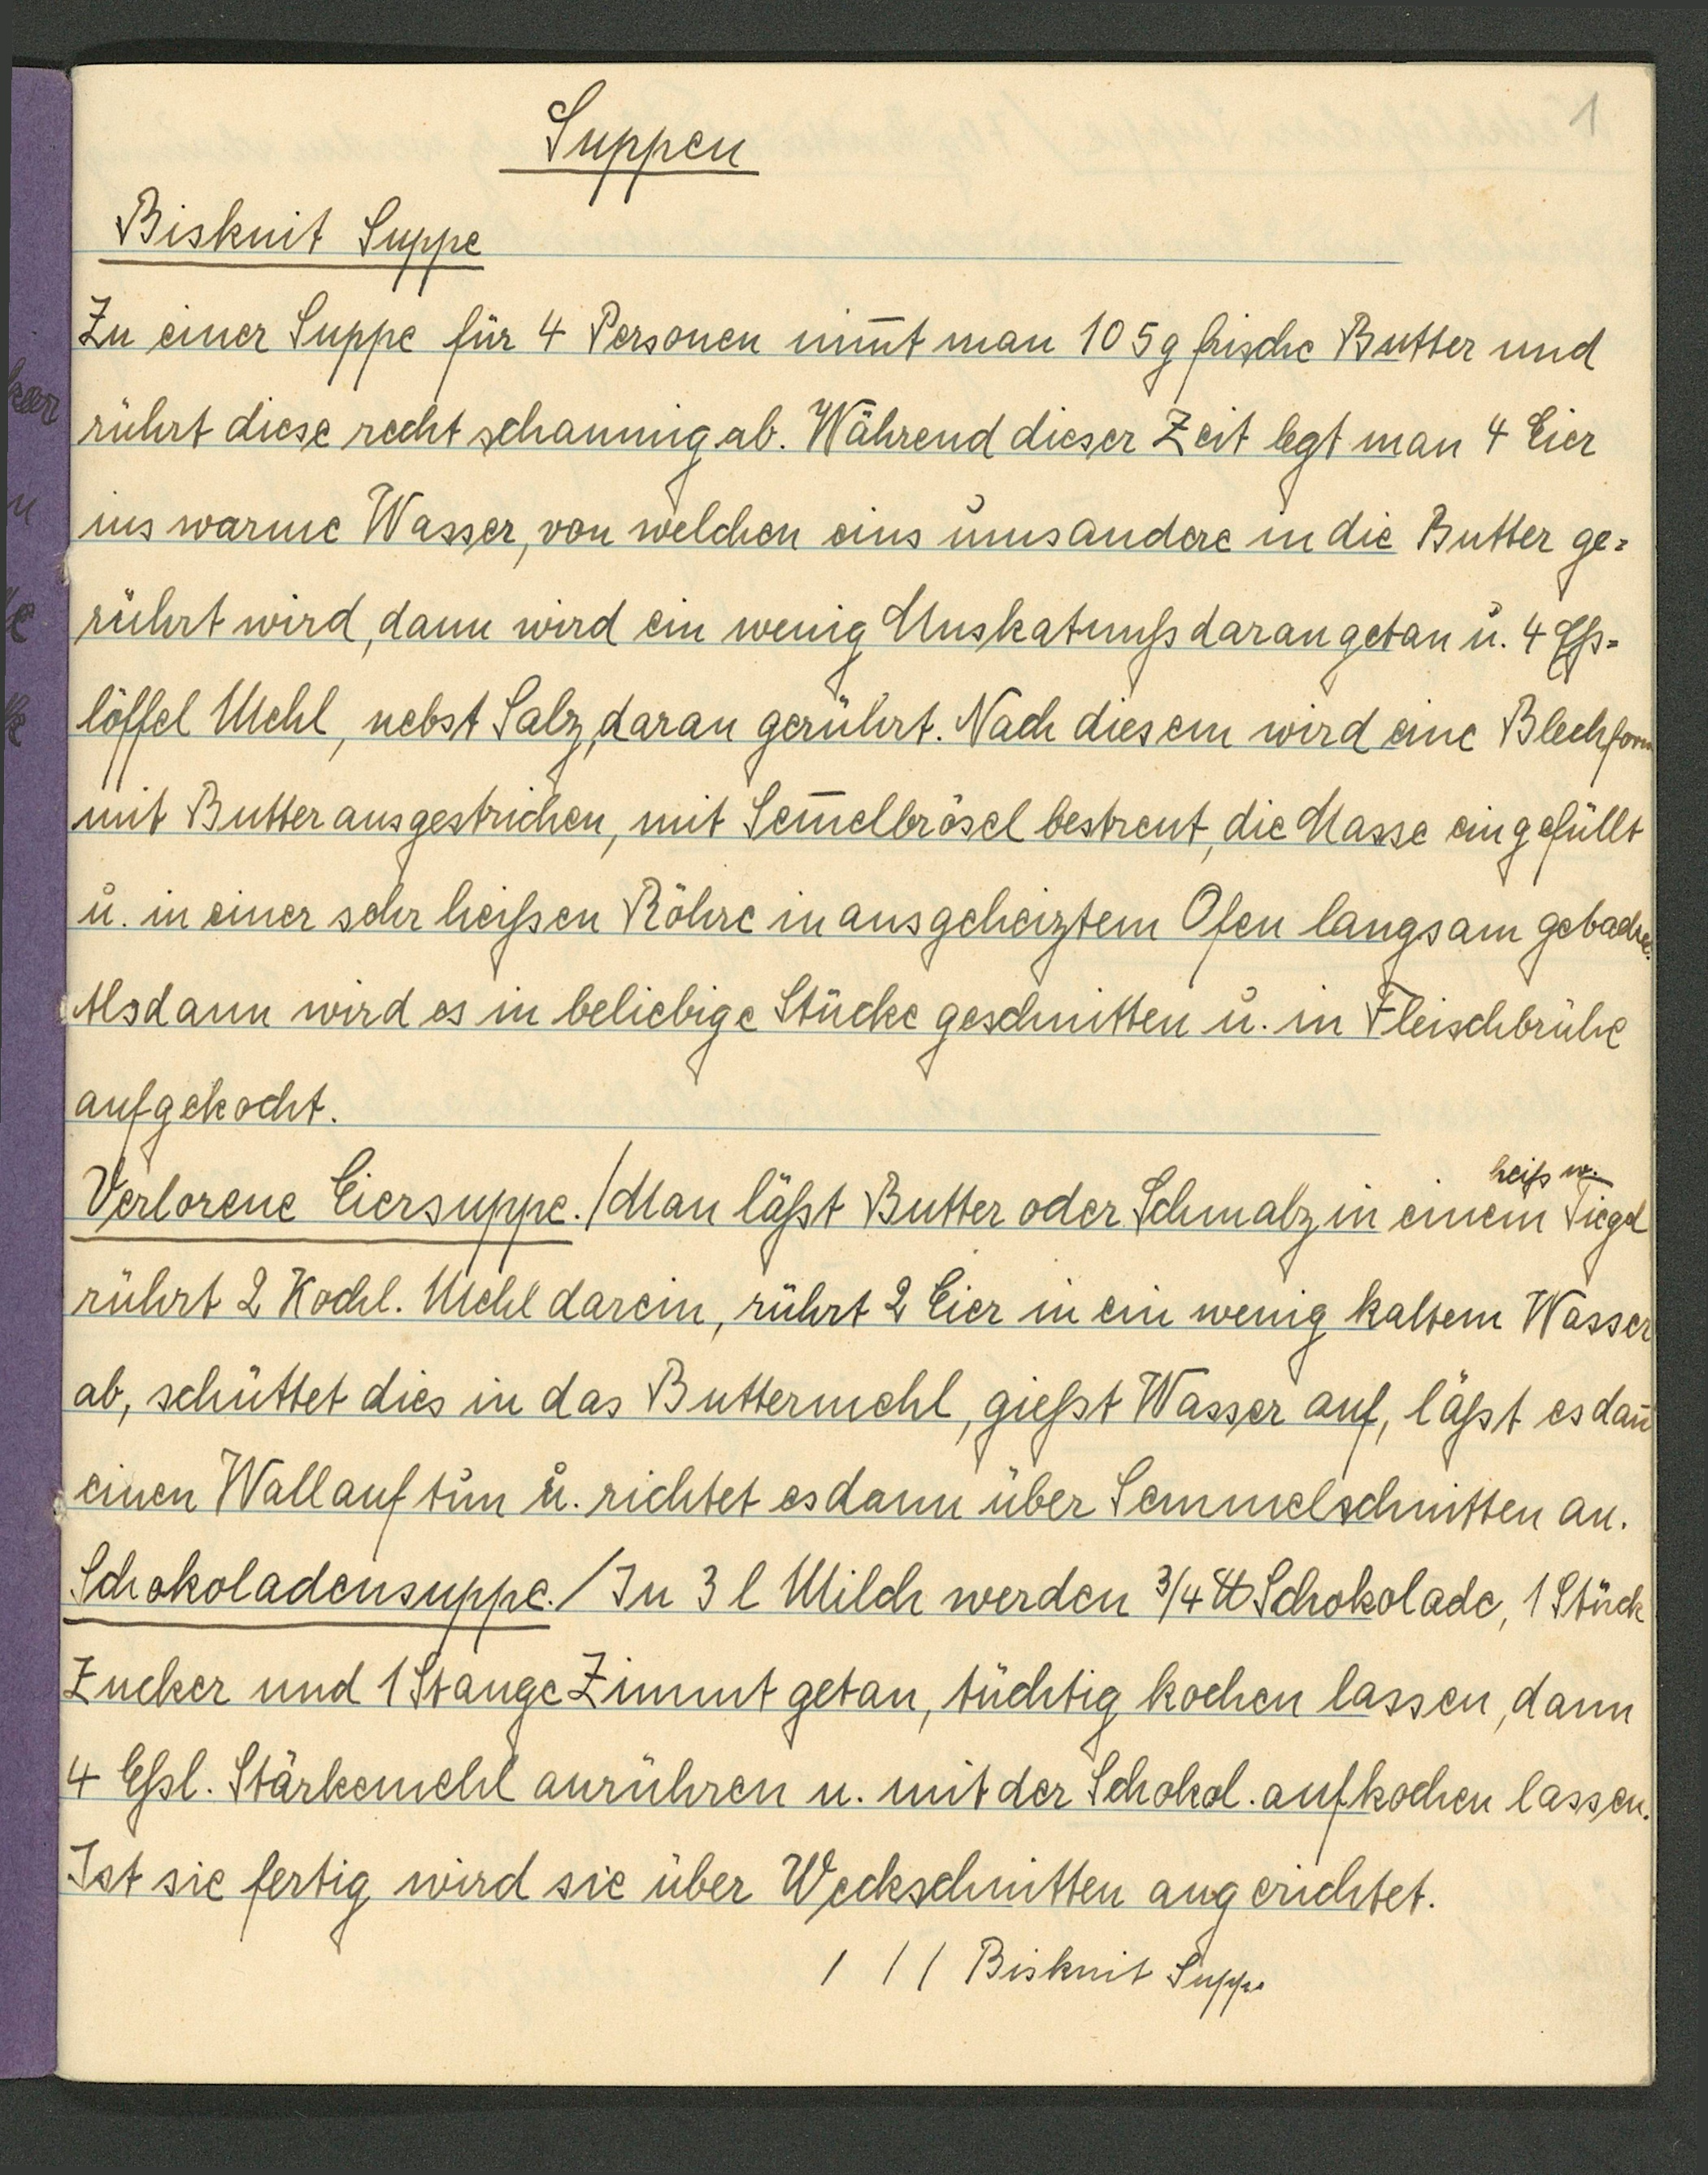 1
Suppen
Biskuit Suppe
Zu einer Suppe für 4 Personen nim̅t man 105g frische Butter und
rührt diese recht schaumig ab. Während dieser Zeit legt man 4 Eier
ins warme Wasser, von welchen eins ums andere in die Butter ge=
rührt wird, dann wird ein wenig Muskatnuß daran getan u. 4 Eß=
löffel Mehl, nebst Salz, daran gerührt. Nach diesem wird eine Blechform
mit Butter ausgestrichen, mit Sem̅elbrösel bestreut, die Masse eingefüllt
u. in einer sehr heißen Röhre in ausgeheiztem Ofen langsam gebacken.
Alsdann wird es in beliebige Stücke geschnitten u. in Fleischbrühe
aufgekocht.
heiß w.
Verlorene Eiersuppe. / Man läßt Butter oder Schmalz in einem Tiegel
rührt 2 Kochl. Mehl darein, rührt 2 Eier in ein wenig kaltem Wasser
ab, schüttet dies in das Buttermehl, gießt Wasser auf, läßt es dan̅
einen Wall auftun u. richtet es dann über Semmelschnitten an.
Schokoladensuppe. / In 3 l Milch werden 3/4 ℔ Schokolade, 1 Stück
Zucker und 1 Stange Zimmt getan, tüchtig kochen lassen, dann
4 Eßl. Stärkemehl anrühren u. mit der Schokol. aufkochen lassen.
Ist sie fertig wird sie über Weckschnitten angerichtet.
/ / / Biskuit Suppe